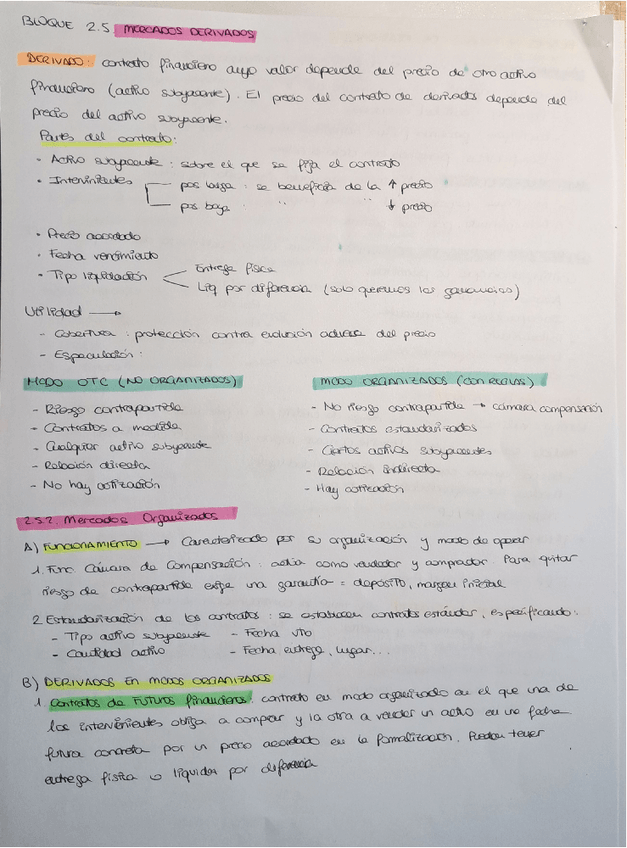 BLOQUE 2.5 MERCADOS DERIVADOS
DERIVADO: contrato financiero cuyo valor depende del precio de otro activo
financiero (activo subyacente). El precio del contrato de derivados depende del
precio del activo subyacente.
Partes del contrato:
• Activo subyacente: sobre el que se fija el contrato
• Intervinientes pos larga: se beneficia de la ↑ precio
pos baja " " ↓ precio
• Precio acordado
• Fecha vencimiento
• Tipo liquidación Entrega física
Liq por diferencia (solo queremos las ganancias)
Utilidad →
- Cobertura: protección contra evolución adversa del precio
- Especulación:
MCDO OTC (NO ORGANIZADOS)
- Riesgo contrapartida
- Contratos a medida
- Cualquier activo subyacente
- Relación directa
- No hay cotización
MCDO ORGANIZADOS (con REGLAS)
- No riesgo contrapartida → cámara compensación
- Contratos estandarizados
- Ciertos activos subyacentes
- Relación indirecta
- Hay cotización
2.5.2. Mercados Organizados
A) FUNCIONAMIENTO → Caracterizado por su organización y modo de operar
1. Func Cámara de Compensación: actúa como vendedor y comprador. Para quitar
riesgo de contrapartida exige una garantía = depósito, margen inicial
2 Estandarización de los contratos: se establecen contratos estándar, especificando:
- Tipo activo subyacente - Fecha vto
- Cantidad activo - Fecha entrega, lugar...
B) DERIVADOS EN MCDOS ORGANIZADOS
1. Contratos de FUTUROS financieros: contrato en mcdo organizado en el que una de
los intervinientes obliga a comprar y la otra a vender un activo en una fecha
futura concreta por un precio acordado en la formalización. Pueden tener
entrega física o liquidar por diferencia